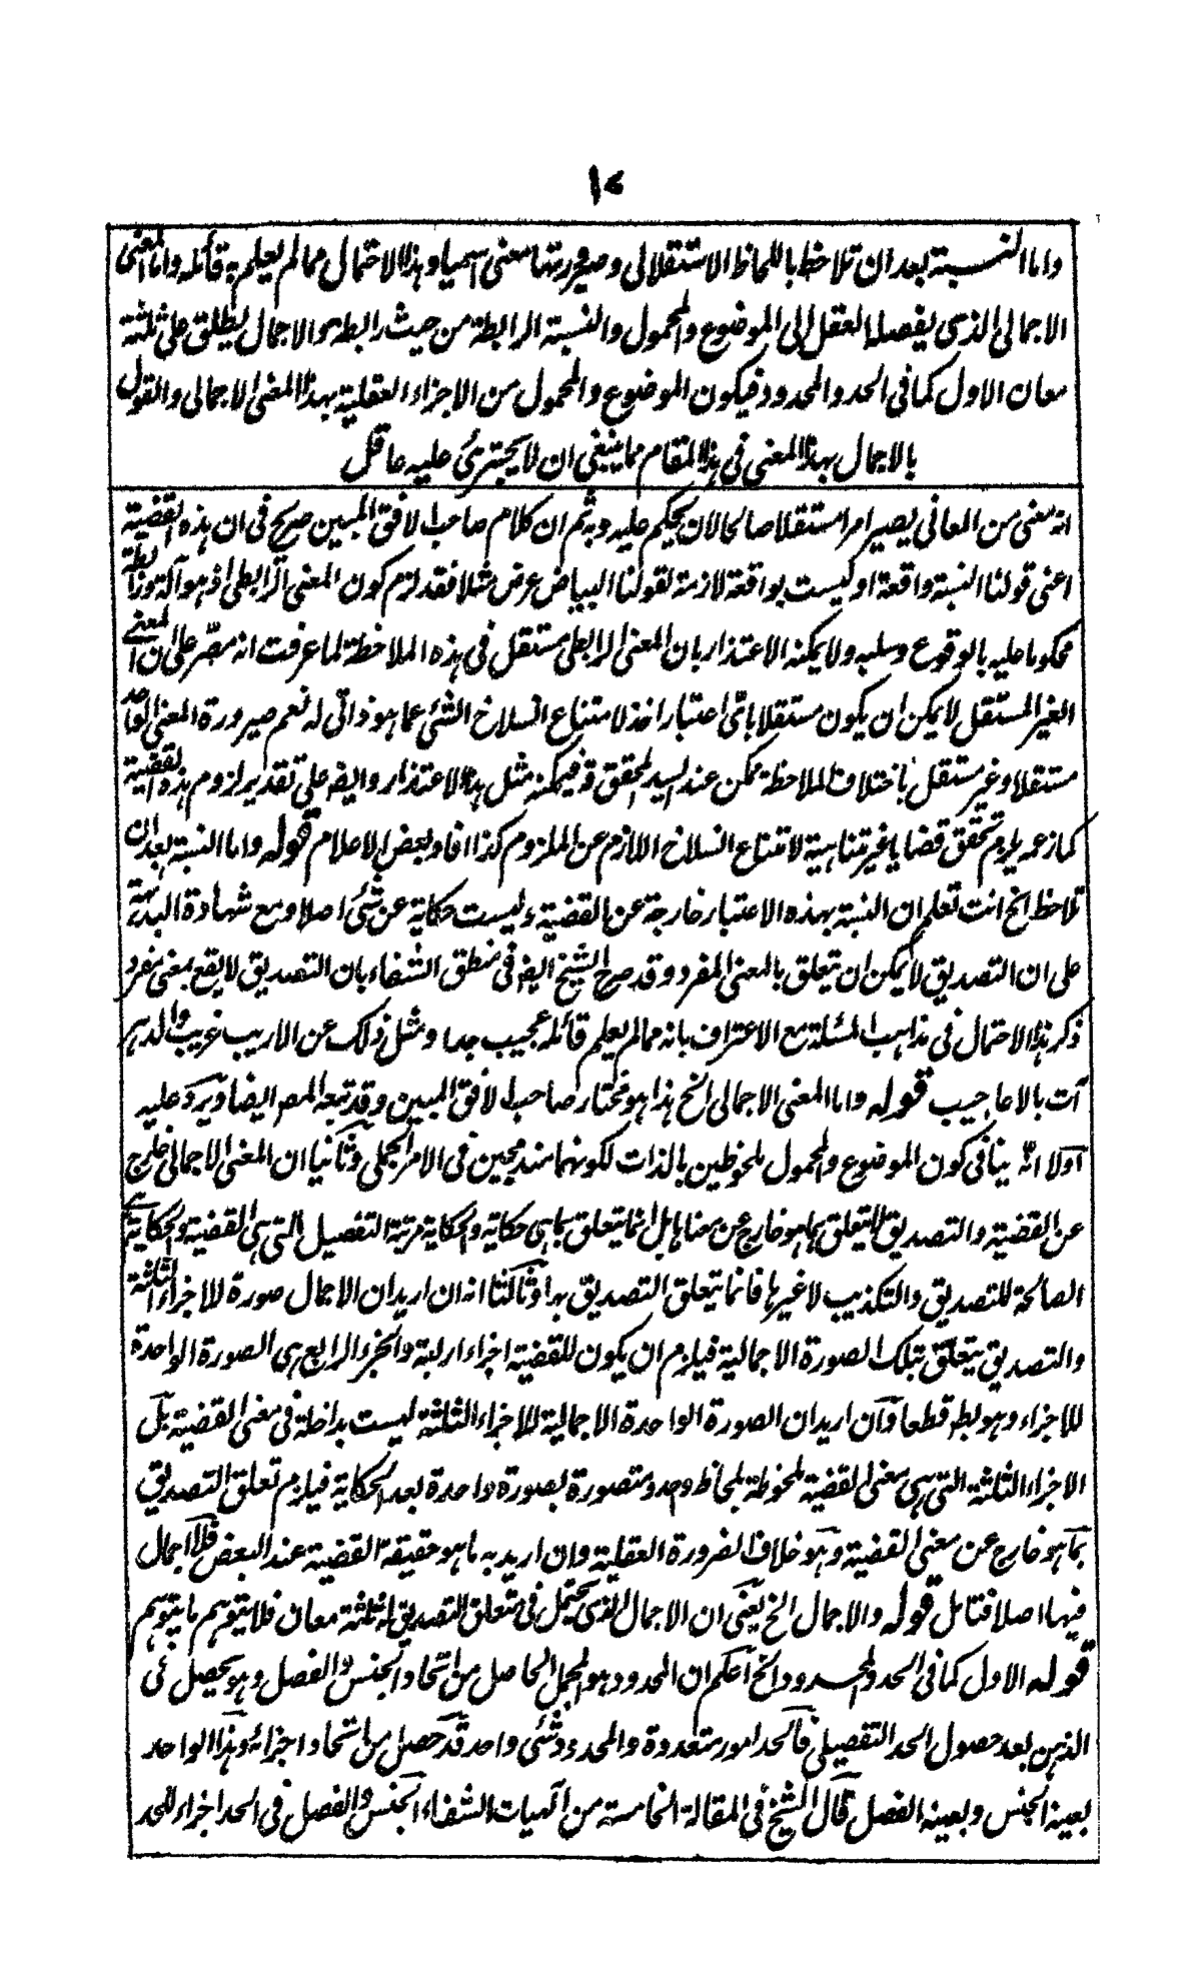 ١٠
واما النسبة بعد ان تلاحظ باللحاظ الاستقلالى وصيرورتها معنى اسميا وهذا الاحتمال مما لم يعلم به قائله واما المعنى
الاجمالى الذى يفصله العقل الى الموضوع والمحمول والنسبة الرابطة من حيث رابطه والاجمال يطلق على ثلثة
معان الاول كما فى الحد والمحدود فيكون الموضوع والمحمول من الاجزاء العقلية بهذا المعنى الاجمالى والقول
بالاجمال بهذا المعنى فى هذا المقام مما ينبغى ان لا يجترئ عليه عاقل
انه معنى من المعانى يصير امرا مستقلا صالحا لان يحكم عليه وبه ثم ان كلام صاحب الافق المبين صريح فى ان هذه القضية
اعنى قولنا النسبة واقعة او ليست بواقعة لازمة لقولنا البياض عرض مثلا فقد لزم كون المعنى الرابطى اذ هو آلة ورابطة
محكوما عليه بالوقوع وسلبه ولا يمكنه الاعتذار بان المعنى الرابطى مستقل فى هذه الملاحظة لما عرفت انه مصر على ان المعنى
الغير المستقل لا يمكن ان يكون مستقلا باى اعتبار اخذ لامتناع انسلاخ الشئ عما هو ذاتى له نعم صيرورة المعنى الواحد
مستقلا وغير مستقل باختلاف الملاحظة ممكن عند السيد المحقق قد فيمكنه مثل هذا الاعتذار وايضه على تقدير لزوم هذه القضية
كما زعمه يلزم تحقق قضايا غير متناهية لامتناع انسلاخ اللازم عن الملزوم كذا افاد بعض الاعلام قوله واما النسبة بعد ان
تلاحظ الخ انت تعلم ان النسبة بهذه الاعتبار خارجة عن القضية وليست حكاية عن شئ اصلا ومع شهادة البديهة
على ان التصديق لا يمكن ان يتعلق بالمعنى المفرد وقد صرح الشيخ ايضه فى منطق الشفاء بان التصديق لا يقع بمعنى مفرد
ذكر هذا الاحتمال فى مذاهب المسئلة مع الاعتراف بانه مما لم يعلم قائله عجيب جدا ومثل ذلك عن الاريب غريب والدهر
آت بالاعاجيب قوله واما المعنى الاجمالى الخ هذا هو مختار صاحب الافق المبين وقد تبعه المصه ايضا ويرد عليه
اولا انه ينافى كون الموضوع والمحمول ملحوظين بالذات لكونهما مندمجين فى الامر الجملى وثانيا ان المعنى الاجمالى خارج
عن القضية والتصديق لا يتعلق بما هو خارج عن معناها بل انما يتعلق بما هى حكاية والحكاية مرتبة التفصيل التى هى القضية والحكاية
الصالحة للتصديق والتكذيب لا غيرها فانما يتعلق التصديق بها وثالثا انه ان اريد ان الاجمال صورة للاجزاء الثلثة
والتصديق يتعلق بتلك الصورة الاجمالية فيلزم ان يكون للقضية اجزاء اربعة والجزء الرابع هى الصورة الواحدة
للاجزاء وهو بط قطعا وان اريد ان الصورة الواحدة الاجمالية للاجزاء الثلثة ليست بداخلة فى معنى القضية بل
الاجزاء الثلثة التى هى معنى القضية ملحوظة بلحاظ وحد ومتصورة بصورة واحدة بعد الحكاية فيلزم تعلق التصديق
بما هو خارج عن معنى القضية وهو خلاف الضرورة العقلية وان اريد به ما هو حقيقة القضية عند البعض فلا اجمال
فيها اصلا فتامل قوله والاجمال الخ يعنى ان الاجمال الذى يحتمل فى متعلق التصديق له ثلثة معان فلا يتوهم ما يتوهم
قوله الاول كما فى الحد والمحدود الخ اعلم ان المحدود هو المجمل الحاصل من اتحاد الجنس والفصل وهو يحصل فى
الذهن بعد حصول الحد التفصيلى فالحد امور متعددة والمحدود شئ واحد قد حصل من اتحاد اجزائه وهذا الواحد
بعينه الجنس وبعينه الفصل قال الشيخ فى المقالة الخامسة من الهيات الشفاء الجنس والفصل فى الحد اجزاء للحد